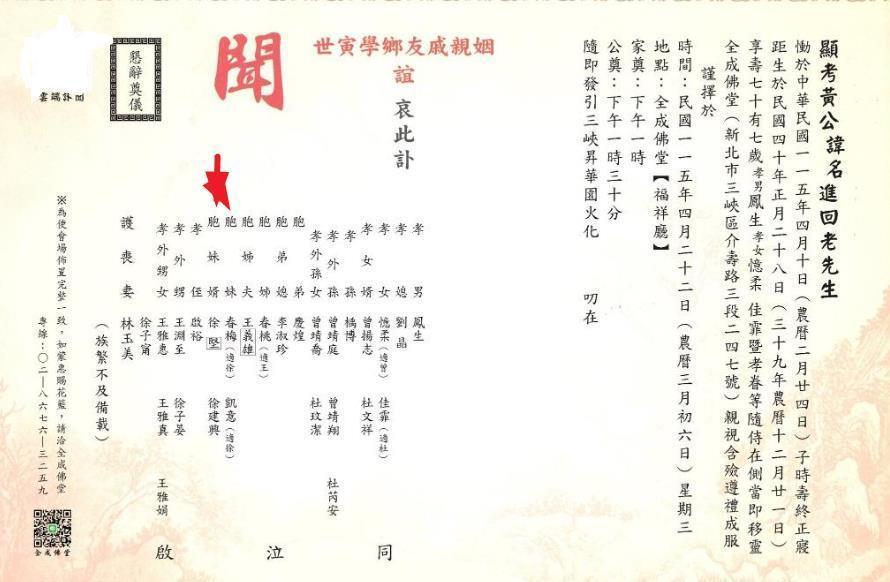 顯考黃公諱名進回老先生
慟於中華民國一一五年四月十日（農曆二月廿四日）子時壽終正寢
距生於民國四十年正月二十八日（三十九年農曆十二月廿一日）
享壽七十有七歲孝男鳳生孝女憶柔 佳霏暨孝眷等隨侍在側當即移靈
全成佛堂（新北市三峽區介壽路三段二四七號）親視含殮遵禮成服
謹擇於
時間：民國一一五年四月二十二日（農曆三月初六日）星期三
地點：全成佛堂【福祥廳】
家奠：下午一時
公奠：下午一時三十分
隨即發引三峽昇華園火化 叨在
姻親戚友鄉學寅世
誼 哀此訃
聞
懇辭奠儀
雲端訃聞
孝男 鳳生
孝媳 劉晶
孝女 憶柔（適曾） 佳霏（適杜）
孝女婿 曾揚志 杜文祥
孝孫 橋博
孝外孫 曾靖庭 曾靖翔 杜芮安
孝外孫女 曾靖喬 杜玟潔
胞弟 慶煌
胞弟媳 李淑珍
胞姊 春桃（適王）
胞姊夫 王義雄
胞妹 春梅（適徐） 凱意（適徐）
胞妹婿 徐堅 徐建興
孝侄 啟裕
孝外甥 王淵至 徐子晏
孝外甥女 王雅惠 王雅真 王雅娟
徐子甯
護喪妻 林玉美
（族繁不及備載）
同
泣
啟
※為使會場佈置完整一致，如蒙惠賜花籃，請洽全成佛堂
專線：○二—八六七六—三二五九
全成佛堂